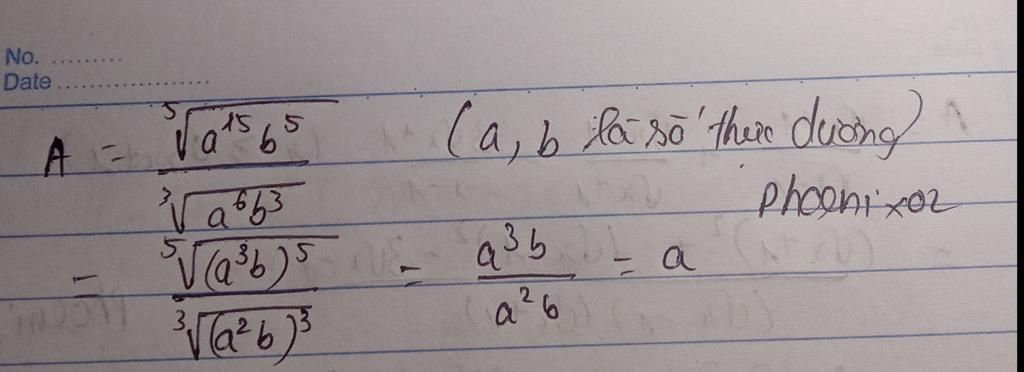 No. .........
Date .....................
A = \frac{\sqrt[5]{a^{15} b^5}}{\sqrt[3]{a^6 b^3}} (a, b là số thực dương)
phoenix02
= \frac{\sqrt[5]{(a^3 b)^5}}{\sqrt[3]{(a^2 b)^3}} = \frac{a^3 b}{a^2 b} = a